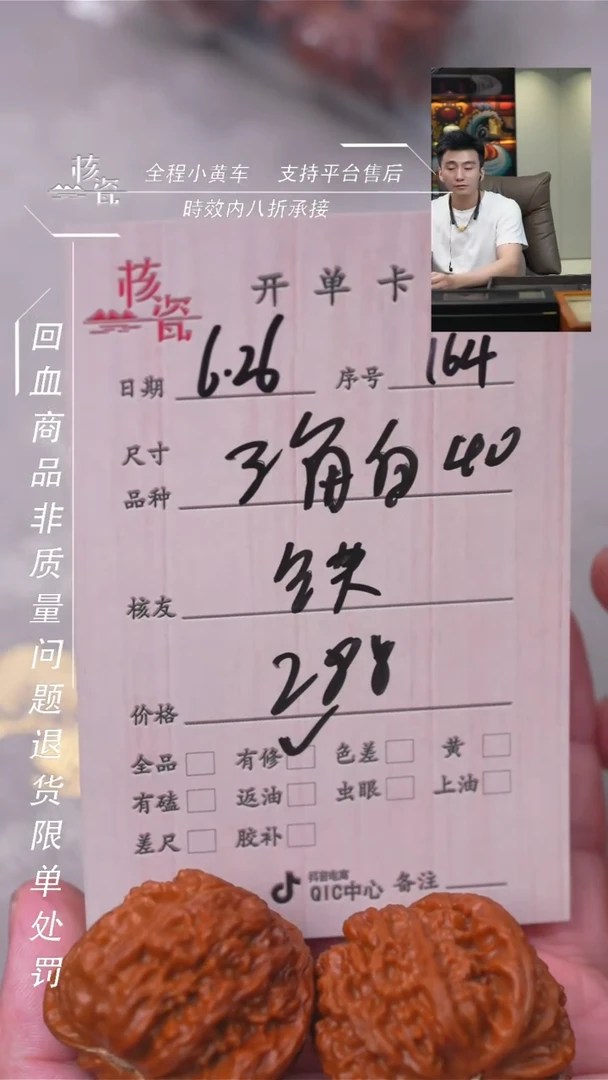 核瓷
全程小黄车 支持平台售后
時效内八折承接
回血商品非质量问题退货限单处罚
核瓷
开单卡
日期 6.26 序号 164
尺寸
品种 三角白 40
核友
价格 298
全品 有修 ✓ 色差 黄
有磕 返油 虫眼 上油
差尺 胶补
抖音电商
QIC中心 备注